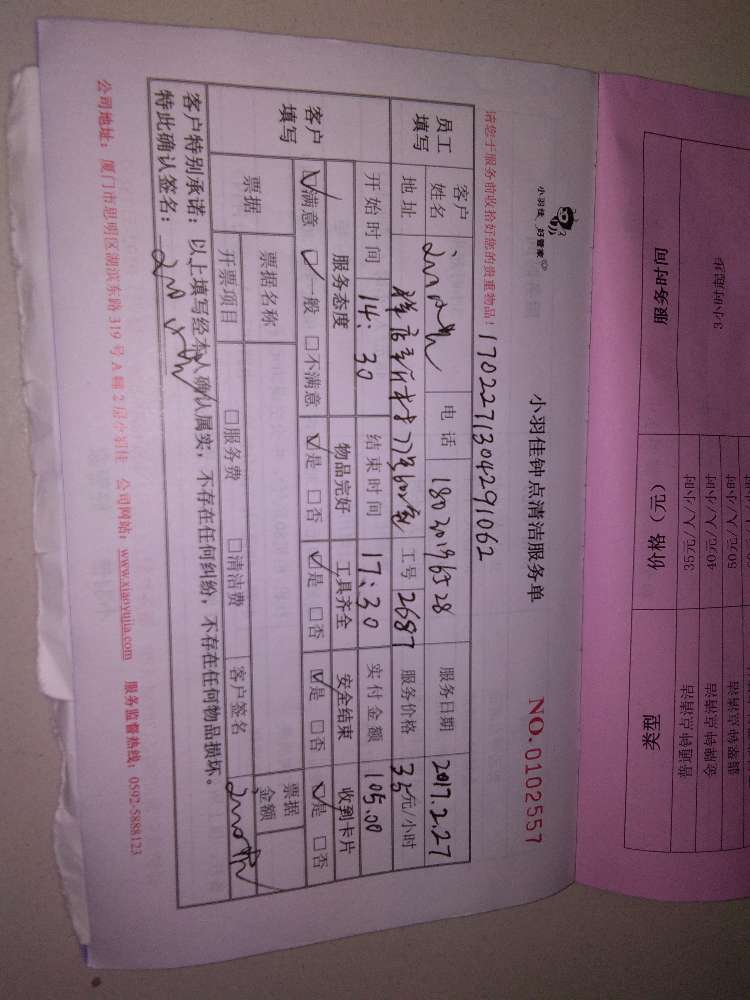 小羽佳 好管家
小羽佳钟点清洁服务单
NO.0102557
请您于服务前收拾好您的贵重物品！
1702271304291062
员工填写
客户姓名
电话 18020196528
服务日期 2017.2.27
地址
工号 2687
服务价格 35元/小时
客户填写
开始时间 14:30
结束时间 17:30
实付金额 105.00
服务态度 物品完好 工具齐全 安全结束 收到卡片
☑满意 ☑一般 □不满意 ☑是 □否 ☑是 □否 ☑是 □否 ☑是 □否
票据
票据名称
票据金额
开票项目 □服务费 □清洁费 客户签名
客户特别承诺：以上填写经本人确认属实，不存在任何纠纷，不存在任何物品损坏。
特此确认签名：
公司地址：厦门市思明区湖滨东路319号A幢2层小羽佳 公司网站：www.xiaoyujia.com 服务监督热线：0592-5888123
服务时间 价格（元） 类型
3小时起步
35元/人/小时 普通钟点清洁
40元/人/小时 金牌钟点清洁
50元/人/小时 翡翠钟点清洁